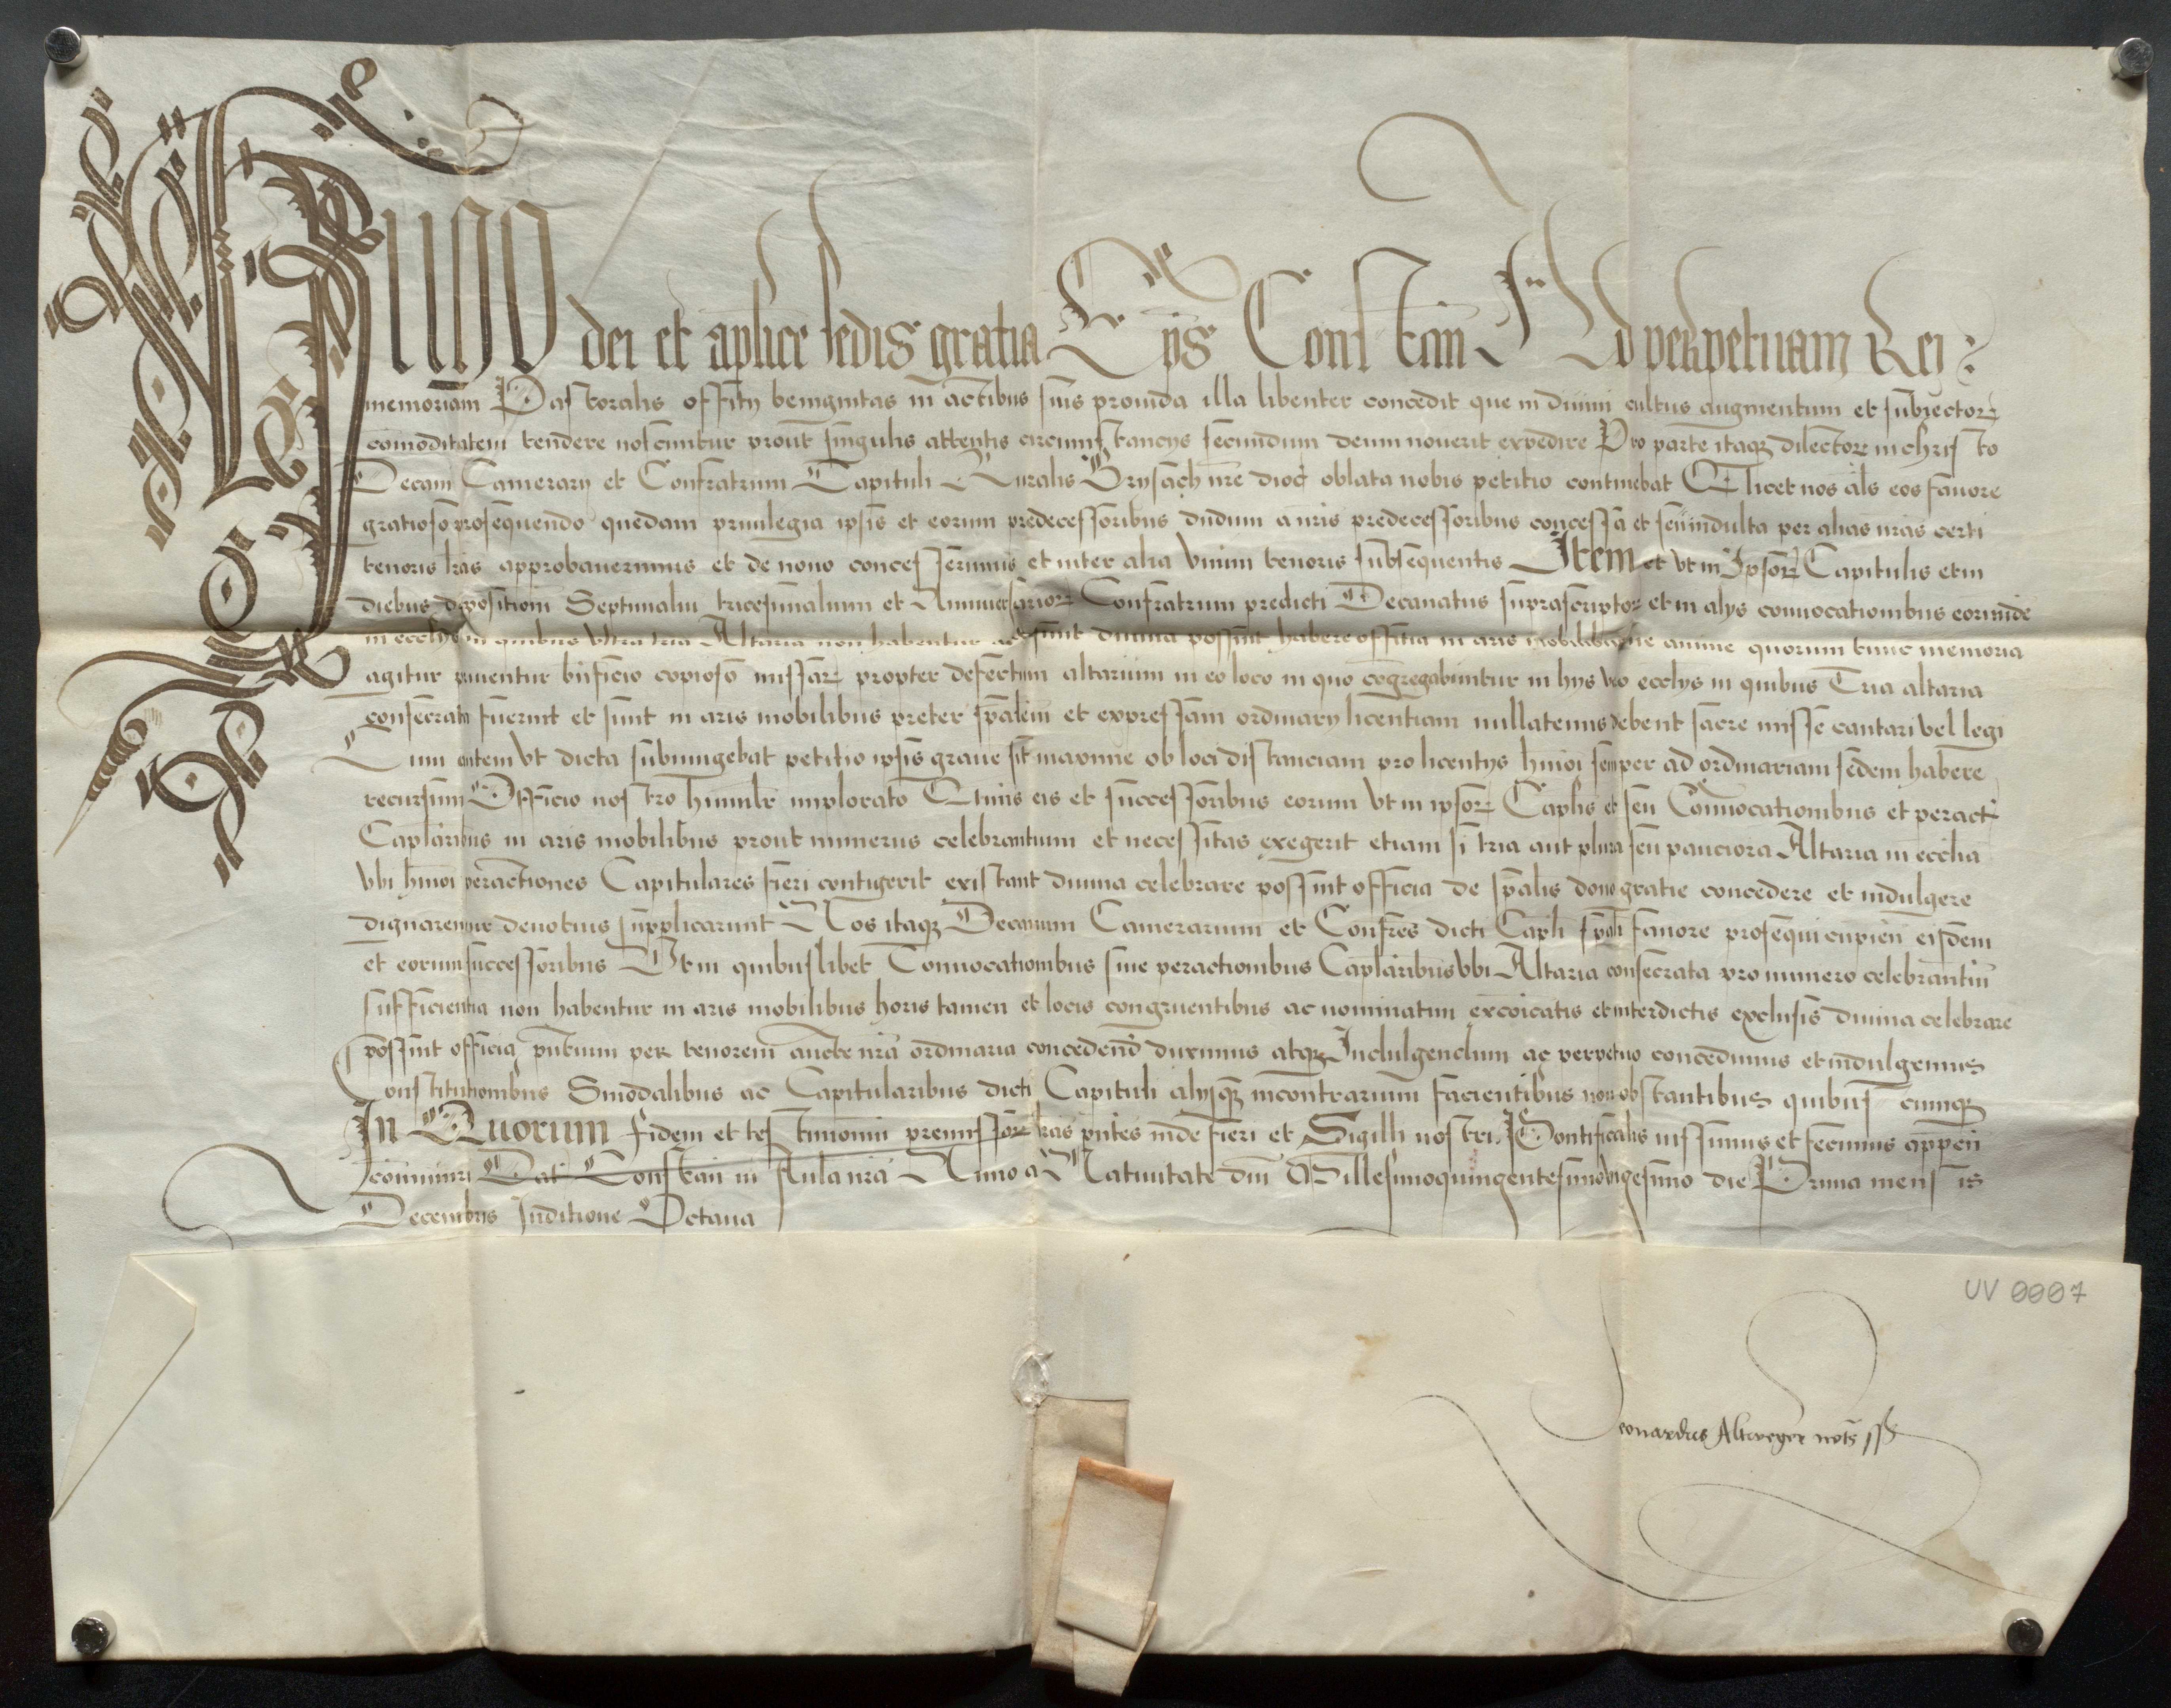 HUGO dei et aplice sedis gratia Ep̄s Constan̄ Ad perpetuam Rei
memoriam Pastoralis offitij benignitas in actibus suis prouida illa libenter concedit que in diuini cultus augmentum et subiectoꝝ
comoditatem tendere noscuntur prout singulis attentis circumstancijs secundum deum nouerit expedire Pro parte itaqꝫ dilectoꝝ in christo
Decani Camerarij et Confratrum Capituli Ruralis Brysach nr̄e dioc̄ oblata nobis petitio continebat Q licet nos al̄s eos fauore
gratioso prosequendo quedam priuilegia ipsis et eorum predecessoribus dudum a nr̄is predecessoribus concessa et seu indulta per alias nr̄as certi
tenoris lr̄as approbauerimus et de nouo concesserimus et inter alia vnum tenoris subsequentis Item et vt in Ipsoꝝ Capitulis et in
diebus depositionū Septimaliū tricesimalium et Anniuersarioꝝ Confratrum predicti Decanatus suprascriptoꝝ et in alijs conuocationibus eorunde
in ecclijs in quibus vltra tria Altaria non habentur diuina possint habere offitia in aris mobilibus ne anime quorum tunc memoria
agitur priuentur bn̄ficio copioso missaꝝ propter defectum altarium in eo loco in quo congregabuntur in hijs vero ecclijs in quibus Tria altaria
consecrata fuerint et sunt in aris mobilibus preter sp̄alem et expressam ordinarij licentiam nullatenus debent sacre misse cantari vel legi
Cum autem vt dicta subiungebat petitio ipsis graue sit maxime ob loci distanciam pro licentijs hm̄oi semper ad ordinariam sedem habere
recursum Officio nostro humilr̄ implorato Qtinus eis et successoribus eorum vt in ipsoꝝ Caplis et seu Conuocationibus et peract
Caplaribus in aris mobilibus prout numerus celebrantium et necessitas exegerit etiam si tria aut plura seu pauciora Altaria in ecclia
vbi hm̄oi peractiones Capitulares fieri contigerit existant diuina celebrare possint officia de sp̄alis dono gratie concedere et indulgere
dignaremur deuotius supplicarunt Nos itaqꝫ Decanum Camerarium et Confres dicti Capli sp̄ali fauore prosequi cupien̄ eisdem
et eorum successoribus Vt in quibuslibet Conuocationibus siue peractionibus Caplaribus vbi Altaria consecrata pro numero celebrantiū
sufficientia non habentur in aris mobilibus horis tamen et locis congruentibus ac nominatim excōicatis et interdictis exclusis diuina celebrare
possint officia pn̄tium per tenorem aucte nr̄a ordinaria concedend̄ duximus atqꝫ Indulgendum ac perpetuo concedimus et indulgemus
Constitutionibus Sinodalibus ac Capitularibus dicti Capituli alijsqꝫ incontrarium facientibus non obstantibus quibuscumqꝫ
In Quorum fidem et testimoniū premissoꝝ lr̄as pn̄tes inde fieri et Sigilli nostri Pontificalis iussimus et fecimus appen̄
comuniri Dat Constan̄ in Aula nr̄a Anno a Natiuitate dn̄i Millesimoquingentesimovigesimo die Prima mensis
Decembris Inditione Octaua
UV 0007
Leonardus Altweger not̄s sst